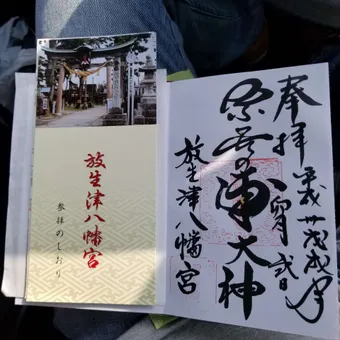 放生津八幡宮
参拝のしおり
奉拝 平成卅戊戌年
卯月弐日
奈呉の浦大神
放生津八幡宮